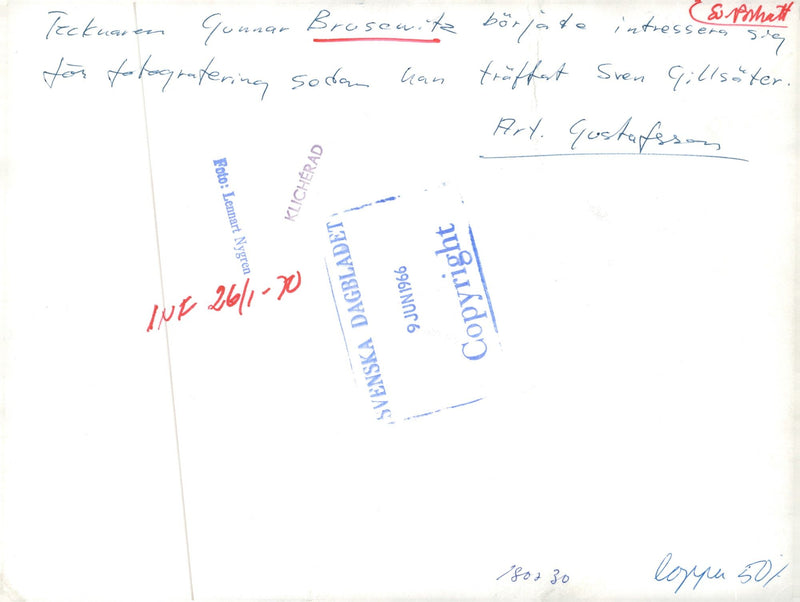 Tecknaren Gunnar Brusewitz började intressera sig
för fotografering sedan han träffat Sven Gillsäter.
Art. Gustafsson
Foto: Lennart Nygren
KLICHERAD
SVENSKA DAGBLADET
9 JUN 1966
Copyright
INF 26/1-70
180 x 30